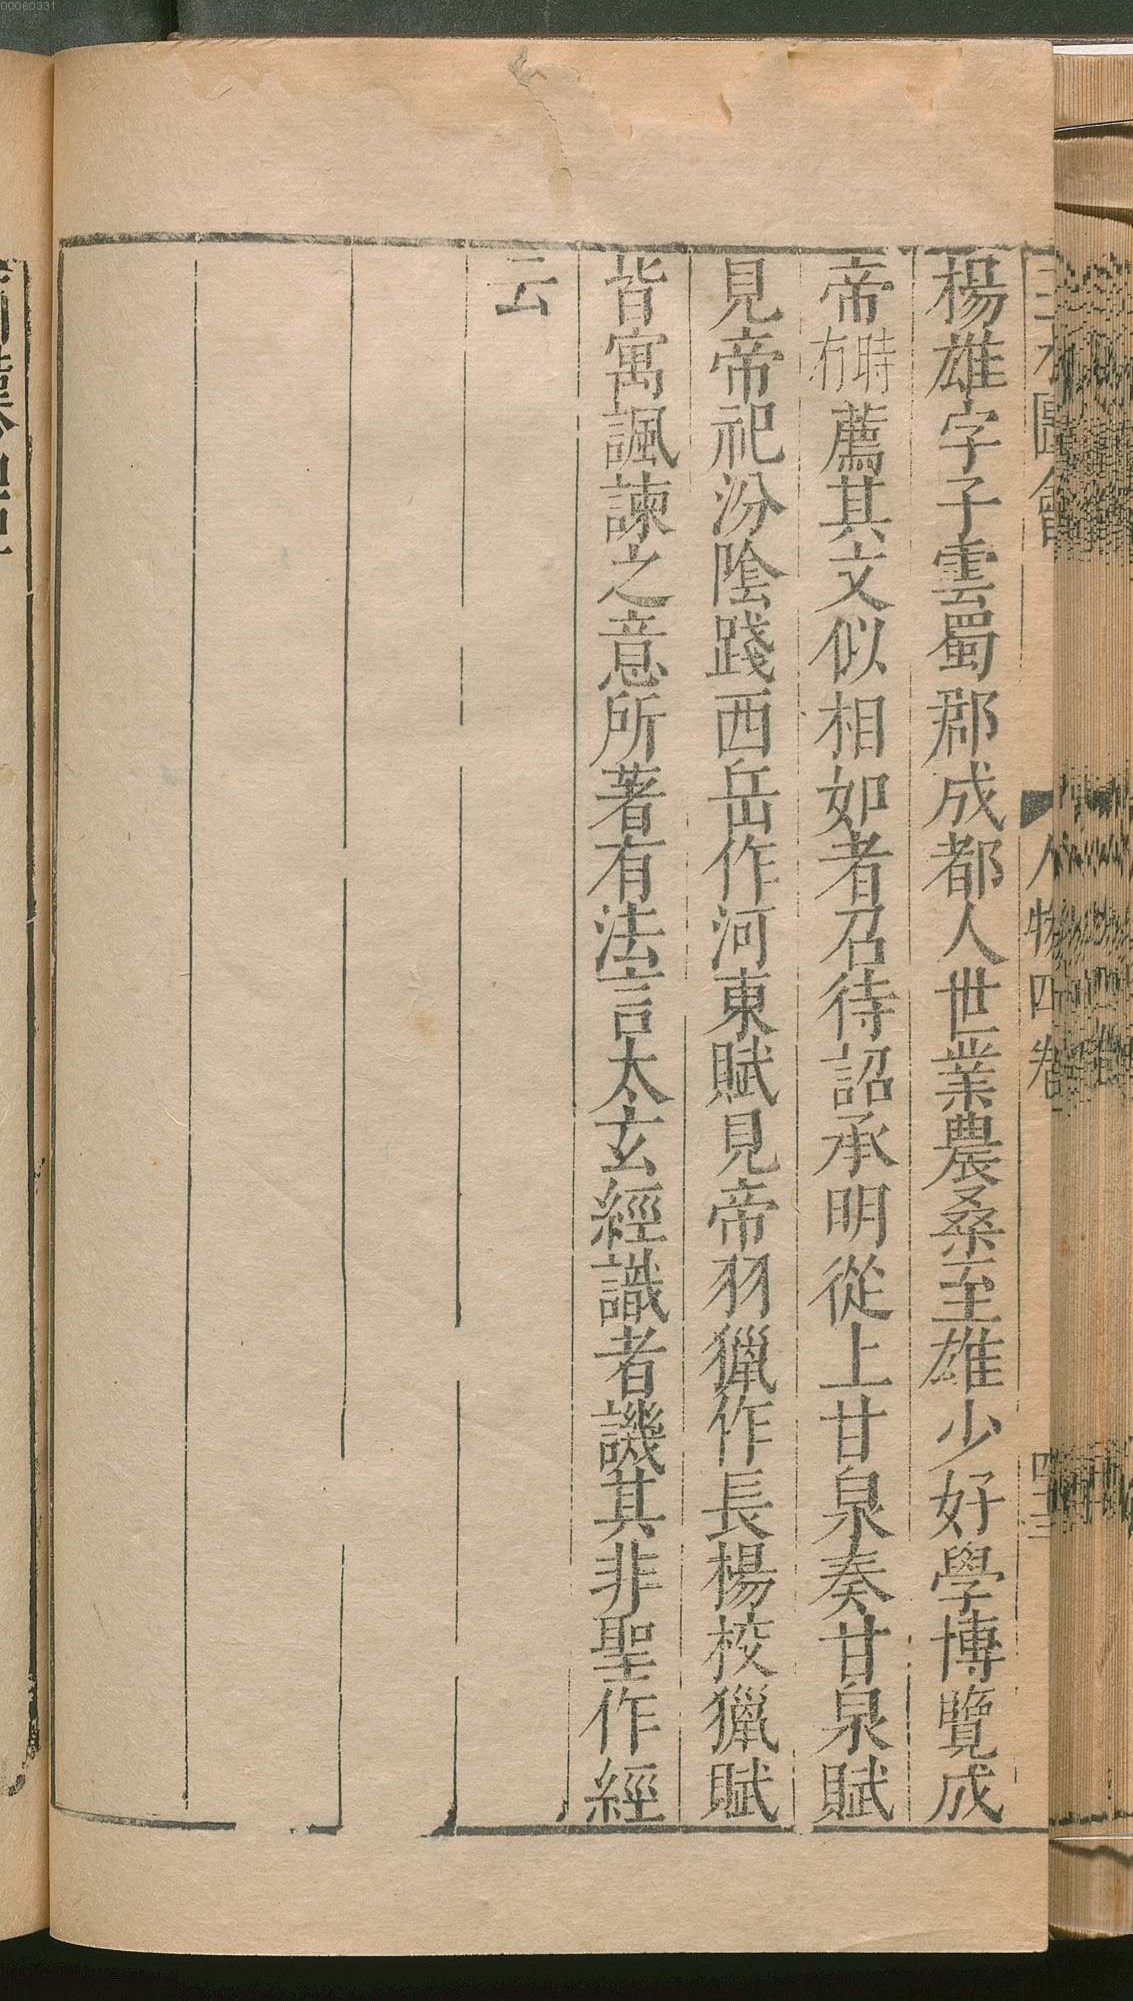 三才圖會 人物四卷 四十三
楊雄字子雲蜀郡成都人世業農桑至雄少好學博覽成
帝時有薦其文似相如者召待詔承明從上甘泉奏甘泉賦
見帝祀汾陰踐西岳作河東賦見帝羽獵作長楊校獵賦
皆寓諷諫之意所著有法言太玄經識者譏其非聖作經
云
00060331